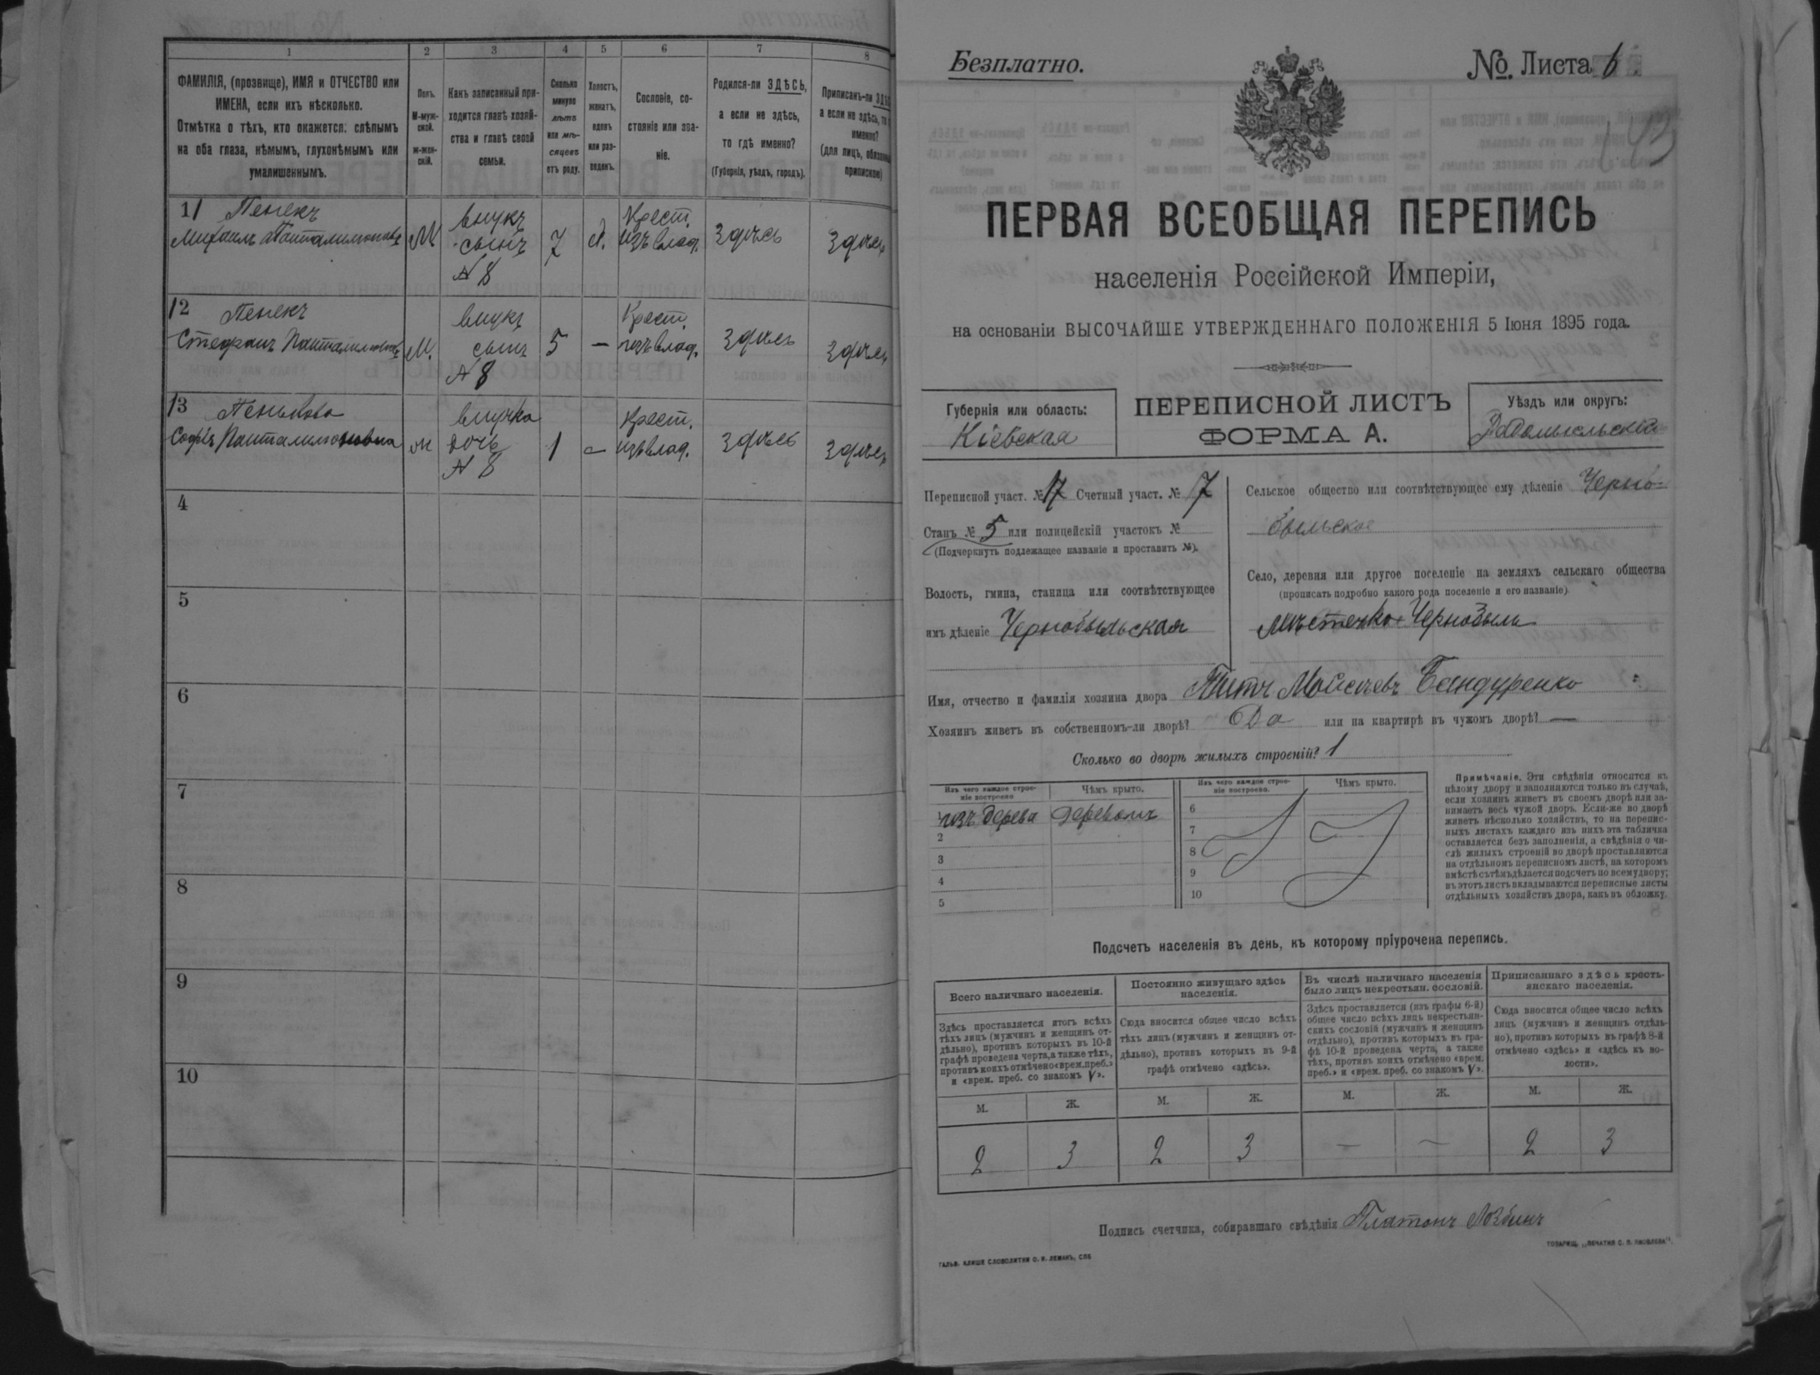 1 2 3 4 5 6 7 8
ФАМИЛІЯ, (прозвище), ИМЯ и ОТЧЕСТВО или
ИМЕНА, если ихъ нѣсколько.
Отмѣтка о тѣхъ, кто окажется: слѣпымъ
на оба глаза, нѣмымъ, глухонѣмымъ или
умалишеннымъ.
Полъ.
М-муж-
ской.
ж-жен-
скій.
Какъ записанный при-
ходится главѣ хозяй-
ства и главѣ своей
семьи.
Сколько
минуло
лѣтъ
или мѣ-
сяцевъ
отъ роду.
Холостъ,
женатъ,
вдовъ
или раз-
веденъ.
Сословіе, со-
стояніе или зва-
ніе.
Родился-ли ЗДѢСЬ,
а если не здѣсь,
то гдѣ именно?
(Губернія, уѣздъ, городъ).
Приписанъ-ли
а если не здѣсь, то
именно?
(для лицъ,
припискою)
11 Пенекъ
Михаилъ Панталимоновъ
М
внукъ
сынъ
№ 8
7
Крест.
изъ влад.
здѣсь
здѣсь
12 Пенекъ
Стефанъ Панталимоновъ
М.
внукъ
сынъ
№ 8
5
—
Крест.
изъ влад.
здѣсь
здѣсь
13 Пенькова
Софія Панталимоновна
ж
внучка
дочь
№ 8
1
—
Крест.
изъ влад.
здѣсь
здѣсь
4
5
6
7
8
9
10
Безплатно.
№. Листа 6.
ПЕРВАЯ ВСЕОБЩАЯ ПЕРЕПИСЬ
населенія Россійской Имперіи,
на основаніи ВЫСОЧАЙШЕ УТВЕРЖДЕННАГО ПОЛОЖЕНІЯ 5 Іюня 1895 года.
Губернія или область:
Кіевская
ПЕРЕПИСНОЙ ЛИСТЪ
ФОРМА А.
Уѣздъ или округъ:
Радомысльскій
Переписной участ. № 17 Счетный участ. № 7
Станъ № 5 или полицейскій участокъ №
(Подчеркнуть подлежащее названіе и проставить №).
Волость, гмина, станица или соотвѣтствующее
имъ дѣленіе Чернобыльская
Сельское общество или соотвѣтствующее ему дѣленіе Черно-
быльское
Село, деревня или другое поселеніе на земляхъ сельскаго общества
(прописать подробно какого рода поселеніе и его названіе)
мѣстечко Чернобыль
Имя, отчество и фамилія хозяина двора Титъ Мойсеевъ Бандуренко
Хозяинъ живетъ въ собственномъ-ли дворѣ? Да или на квартирѣ въ чужомъ дворѣ? —
Сколько во дворѣ жилыхъ строеній? 1
Изъ чего каждое строе-
ніе построено
Чѣмъ крыто.
Изъ чего каждое строе-
ніе построено.
Чѣмъ крыто.
изъ дерева деревомъ
2
3
4
5
6
7
8
9
10
Примѣчаніе. Эти свѣдѣнія относятся къ
цѣлому двору и заполняются только въ случаѣ,
если хозяинъ живетъ въ своемъ дворѣ или за-
нимаетъ весь чужой дворъ. Если-же во дворѣ
живетъ нѣсколько хозяйствъ, то на перепис-
ныхъ листахъ каждаго изъ нихъ эта табличка
оставляется безъ заполненія, а свѣдѣнія о чи-
слѣ жилыхъ строеній во дворѣ проставляются
на отдѣльномъ переписномъ листѣ, на которомъ
вмѣстѣ съ тѣмъ дѣлается подсчетъ по всему двору;
въ этотъ листъ вкладываются переписные листы
отдѣльныхъ хозяйствъ двора, какъ въ обложку.
Подсчетъ населенія въ день, къ которому пріурочена перепись.
Всего наличнаго населенія.
Здѣсь проставляется итогъ всѣхъ
тѣхъ лицъ (мужчинъ и женщинъ от-
дѣльно), противъ которыхъ въ 10-й
графѣ проведена черта, а также тѣхъ,
противъ коихъ отмѣчено «врем. преб.»
и «врем. преб. со знакомъ V».
Постоянно живущаго здѣсь
населенія.
Сюда вносится общее число всѣхъ
тѣхъ лицъ (мужчинъ и женщинъ от-
дѣльно), противъ которыхъ въ 9-й
графѣ отмѣчено «здѣсь».
Въ числѣ наличнаго населенія
было лицъ некрестьян. сословій.
Здѣсь проставляется (изъ графы 6-й)
общее число всѣхъ лицъ некрестьян-
скихъ сословій (мужчинъ и женщинъ
отдѣльно), противъ которыхъ въ гра-
фѣ 10-й проведена черта, а также
тѣхъ, противъ коихъ отмѣчено «врем.
преб.» и «врем. преб. со знакомъ V».
Приписаннаго здѣсь кресть-
янскаго населенія.
Сюда вносится общее число всѣхъ
лицъ (мужчинъ и женщинъ отдѣль-
но), противъ которыхъ въ графѣ 8-й
отмѣчено «здѣсь» и «здѣсь въ во-
лости».
М. Ж. М. Ж. М. Ж. М. Ж.
2 3 2 3 — — 2 3
Подпись счетчика, собиравшаго свѣдѣнія Платонъ
ГАЛЬВ. КЛИШЕ СЛОВОЛИТНИ О. И. ЛЕМАНЪ, СПБ
ТОВАРИЩ. „ПЕЧАТНЯ С. П. ЯКОВЛЕВА".